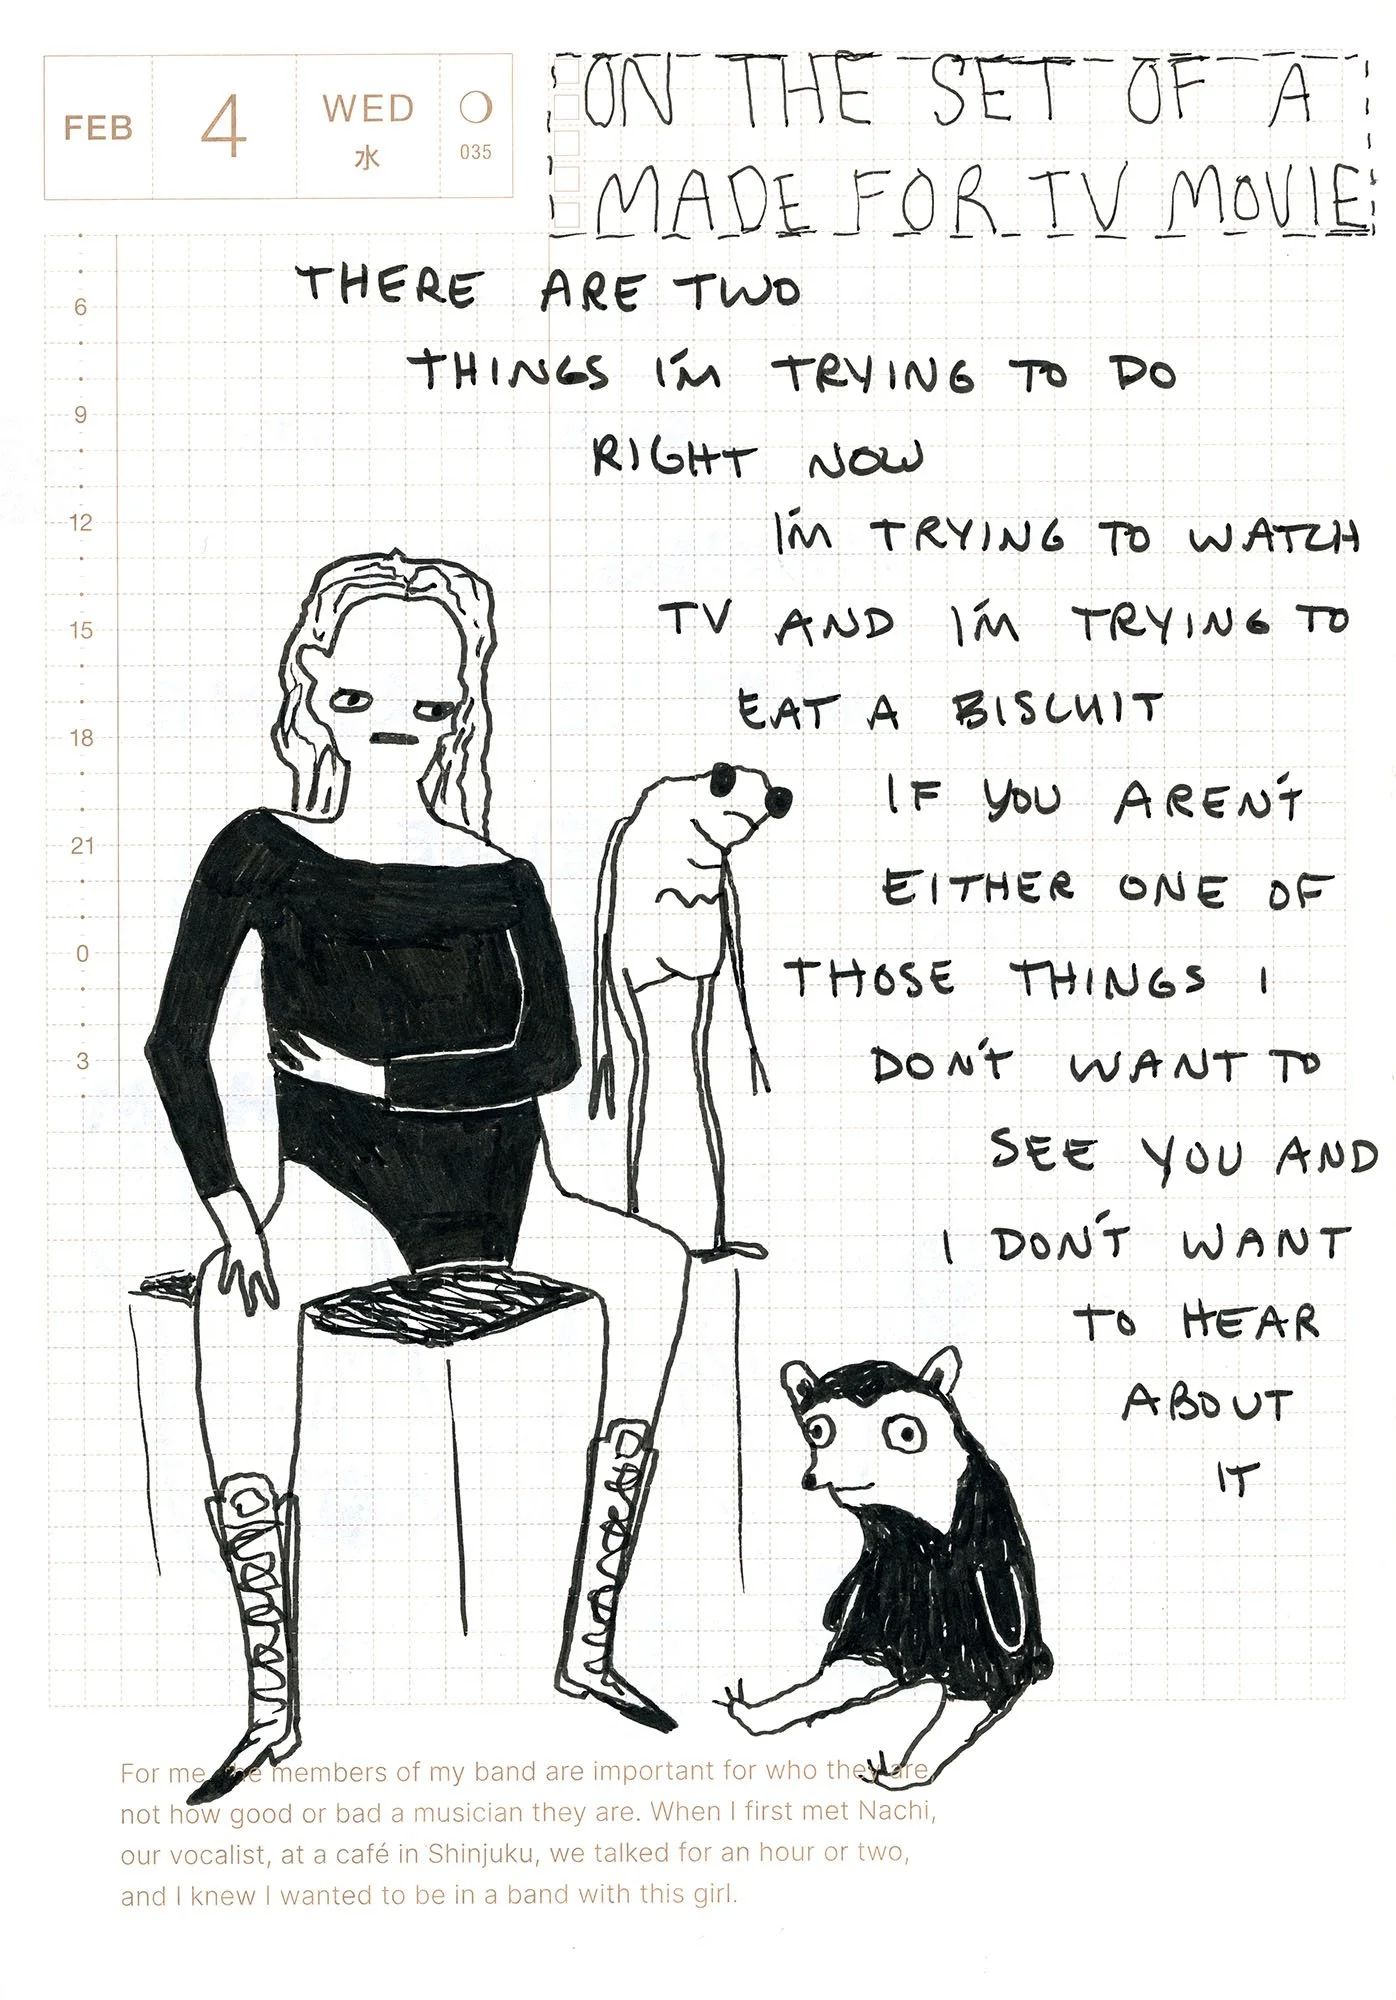 FEB 4 WED 水 035
ON THE SET OF A
MADE FOR TV MOVIE
THERE ARE TWO
THINGS I'M TRYING TO DO
RIGHT NOW
I'M TRYING TO WATCH
TV AND I'M TRYING TO
EAT A BISCUIT
IF YOU AREN'T
EITHER ONE OF
THOSE THINGS I
DON'T WANT TO
SEE YOU AND
I DON'T WANT
TO HEAR
ABOUT
IT
6
9
12
15
18
21
0
3
For me, the members of my band are important for who they are,
not how good or bad a musician they are. When I first met Nachi,
our vocalist, at a café in Shinjuku, we talked for an hour or two,
and I knew I wanted to be in a band with this girl.